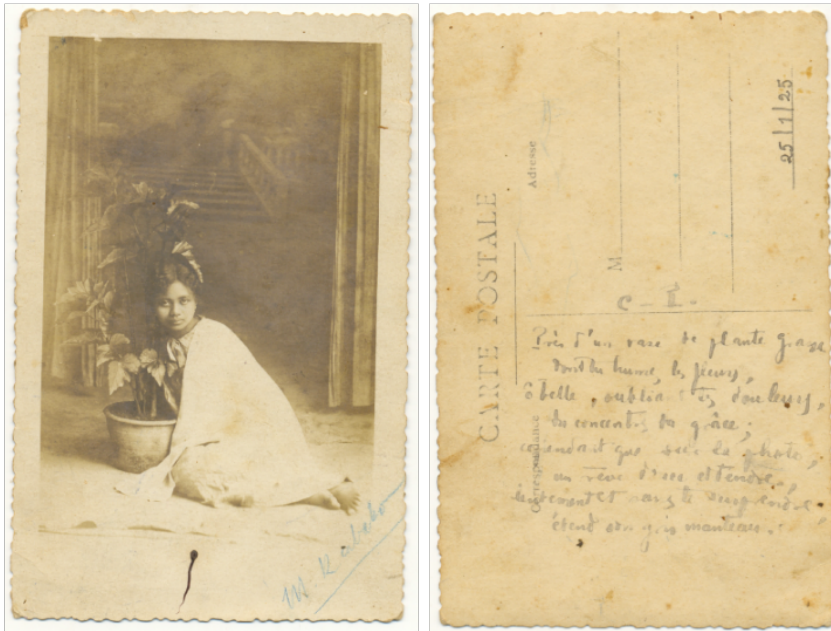 M
CARTE POSTALE
Adresse
Correspondance
M
25/1/25
C - I -
Près d'un vase de plante grasse
dont tu hume, les fleurs,
ô belle, oubliant tes douleurs,
tu concentres ta grâce;
cependant que sur la photo,
un rêve doux et tendre,
lentement et sans te surprendre,
étend son gris manteau.